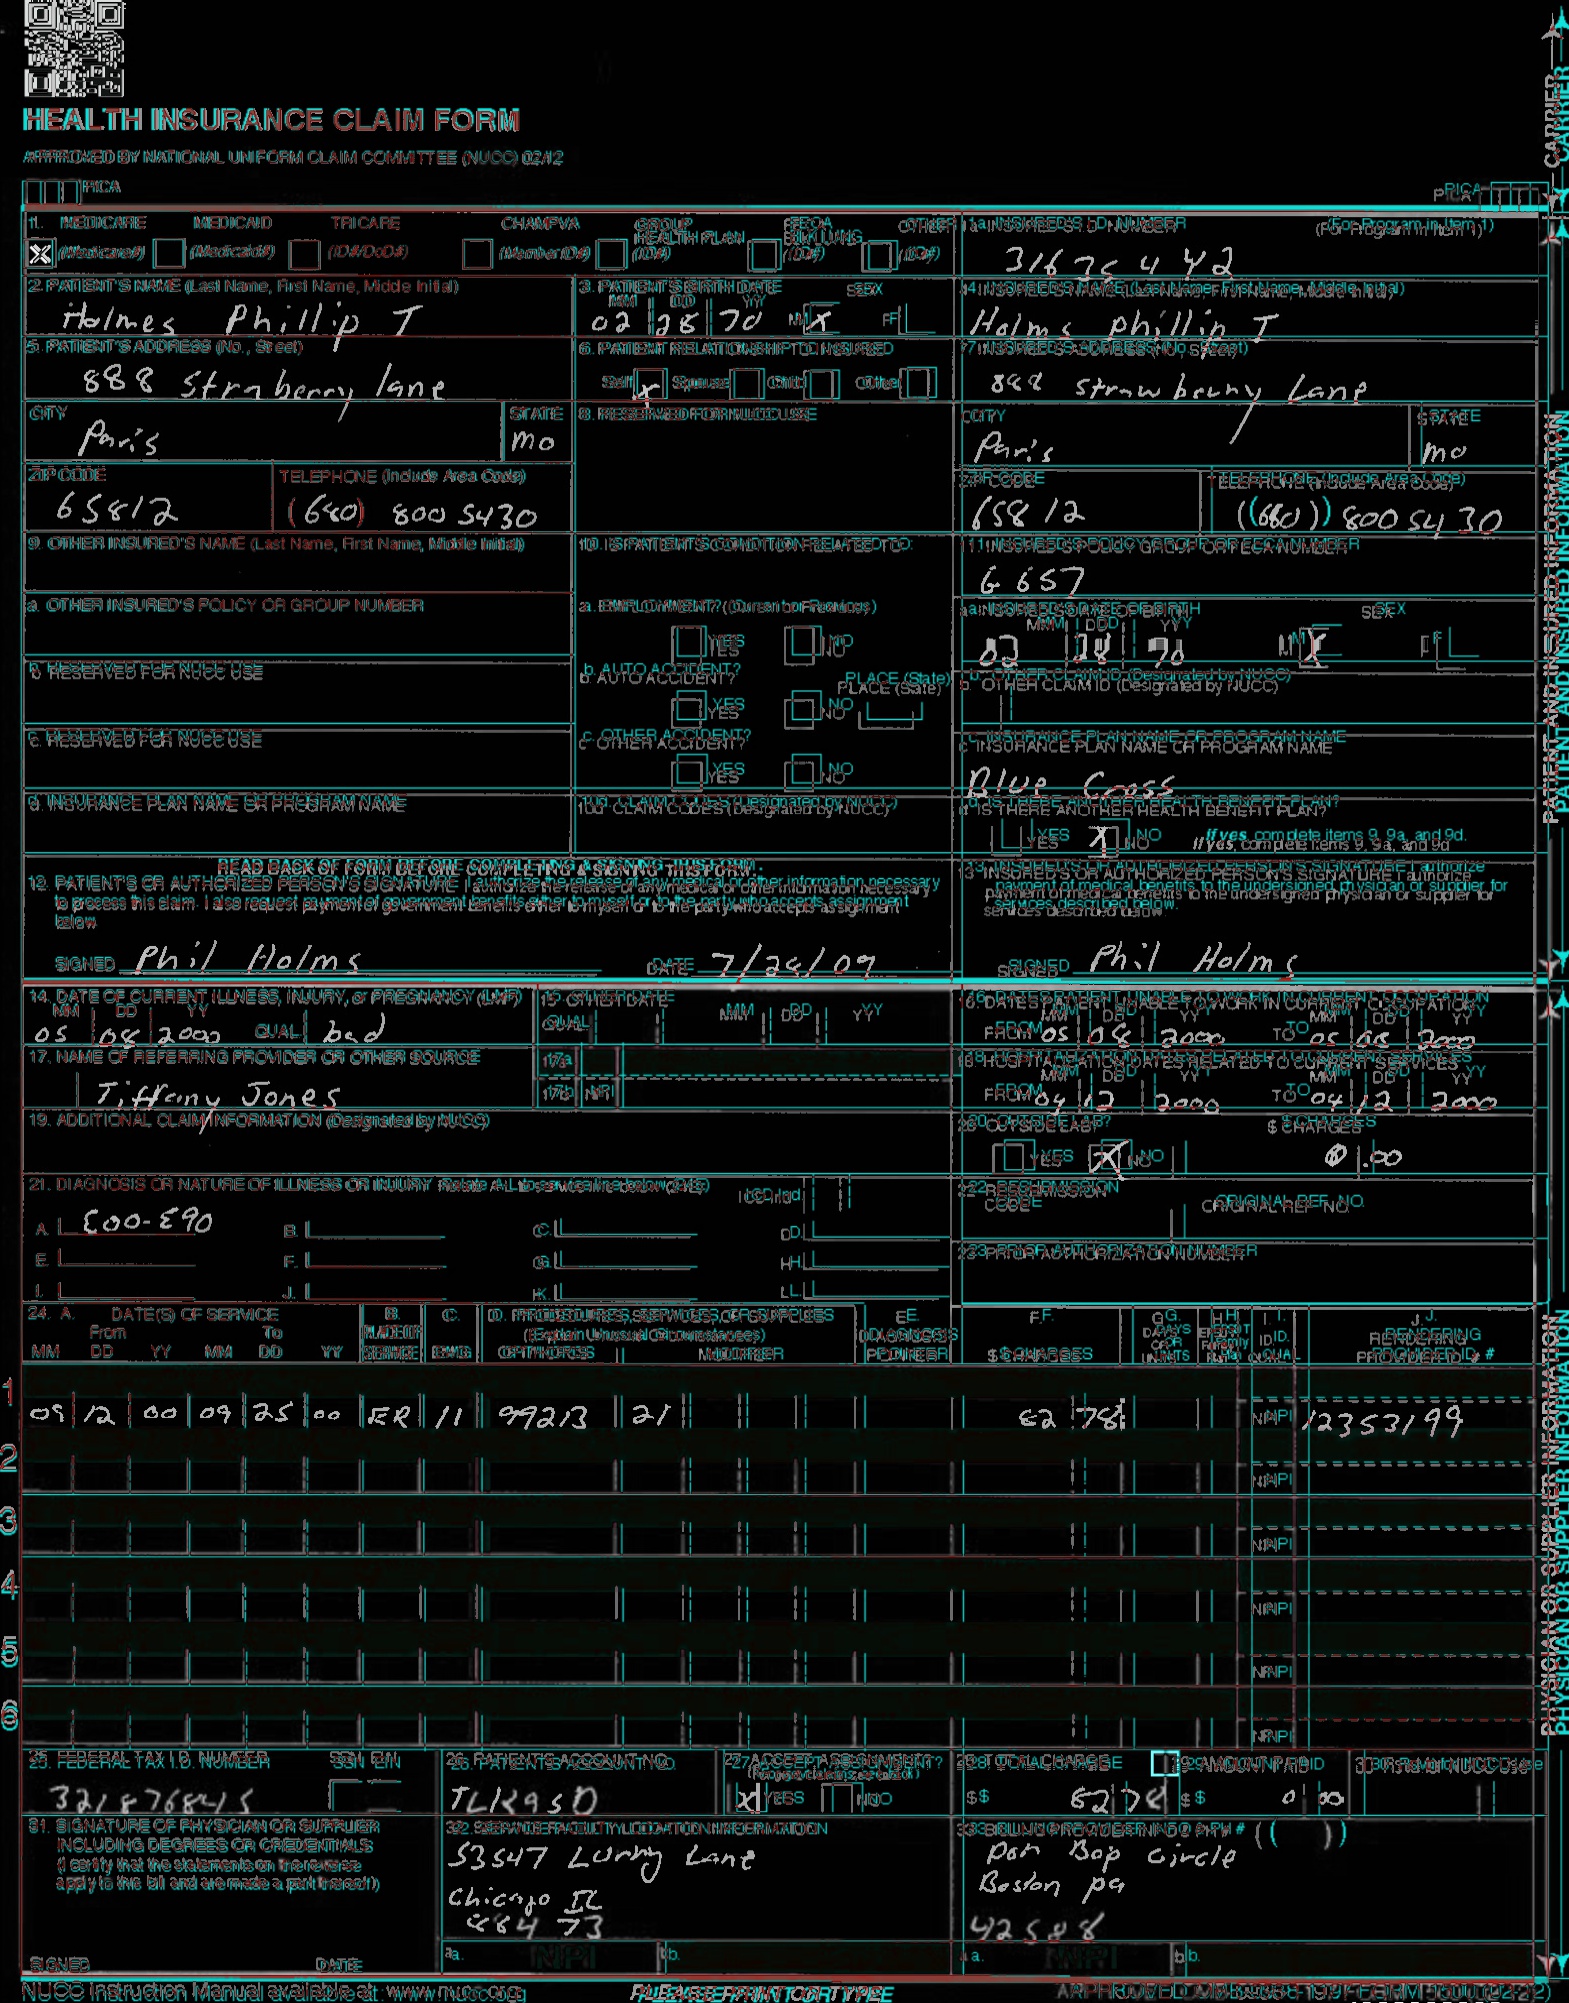 HEALTH INSURANCE CLAIM FORM
APPROVED BY NATIONAL UNIFORM CLAIM COMMITTEE (NUCC) 02/12
PICA
PICA
CARRIER
1. MEDICARE MEDICAID TRICARE CHAMPVA GROUP HEALTH PLAN FECA BLK LUNG OTHER
(Medicare#) (Medicaid#) (ID#/DoD#) (Member ID#) (ID#) (ID#) (ID#)
1a. INSURED'S I.D. NUMBER (For Program in Item 1)
2. PATIENT'S NAME (Last Name, First Name, Middle Initial)
Holmes Phillip T
3. PATIENT'S BIRTH DATE SEX
MM DD YY
02 28 70 M X F
4. INSURED'S NAME (Last Name, First Name, Middle Initial)
Holms phillip T
5. PATIENT'S ADDRESS (No., Street)
888 Straberry lane
6. PATIENT RELATIONSHIP TO INSURED
Self X Spouse Child Other
7. INSURED'S ADDRESS (No., Street)
888 strawberry Lane
CITY STATE
Paris mo
8. RESERVED FOR NUCC USE
CITY STATE
Paris mo
ZIP CODE TELEPHONE (Include Area Code)
65812 (680) 800 5430
ZIP CODE TELEPHONE (Include Area Code)
65812 (680) 800 5430
9. OTHER INSURED'S NAME (Last Name, First Name, Middle Initial)
10. IS PATIENT'S CONDITION RELATED TO:
11. INSURED'S POLICY GROUP OR FECA NUMBER
G 657
a. OTHER INSURED'S POLICY OR GROUP NUMBER
a. EMPLOYMENT? (Current or Previous)
YES NO
a. INSURED'S DATE OF BIRTH SEX
MM DD YY
02 28 70 M X F
b. RESERVED FOR NUCC USE
b. AUTO ACCIDENT? PLACE (State)
YES NO
b. OTHER CLAIM ID (Designated by NUCC)
c. RESERVED FOR NUCC USE
c. OTHER ACCIDENT?
YES NO
c. INSURANCE PLAN NAME OR PROGRAM NAME
Blue Cross
d. INSURANCE PLAN NAME OR PROGRAM NAME
10d. CLAIM CODES (Designated by NUCC)
d. IS THERE ANOTHER HEALTH BENEFIT PLAN?
YES X NO If yes, complete items 9, 9a, and 9d.
READ BACK OF FORM BEFORE COMPLETING & SIGNING THIS FORM.
12. PATIENT'S OR AUTHORIZED PERSON'S SIGNATURE I authorize the release of any medical or other information necessary
to process this claim. I also request payment of government benefits either to myself or to the party who accepts assignment
below.
SIGNED Phil Holms DATE 7/28/09
13. INSURED'S OR AUTHORIZED PERSON'S SIGNATURE I authorize
payment of medical benefits to the undersigned physician or supplier for
services described below.
SIGNED Phil Holms
PATIENT AND INSURED INFORMATION
14. DATE OF CURRENT ILLNESS, INJURY, or PREGNANCY (LMP)
MM DD YY
05 08 2000 QUAL. bad
15. OTHER DATE
QUAL. MM DD YY
16. DATES PATIENT UNABLE TO WORK IN CURRENT OCCUPATION
MM DD YY MM DD YY
FROM 05 08 2000 TO 05 08 2000
17. NAME OF REFERRING PROVIDER OR OTHER SOURCE
Tiffany Jones
17a.
17b. NPI
18. HOSPITALIZATION DATES RELATED TO CURRENT SERVICES
MM DD YY MM DD YY
FROM 04 12 2000 TO 04 12 2000
19. ADDITIONAL CLAIM INFORMATION (Designated by NUCC)
20. OUTSIDE LAB? $ CHARGES
YES X NO 0 .00
21. DIAGNOSIS OR NATURE OF ILLNESS OR INJURY Relate A-L to service line below (24E) ICD Ind.
A. E00-E90 B. C. D.
E. F. G. H.
I. J. K. L.
22. RESUBMISSION CODE ORIGINAL REF. NO.
23. PRIOR AUTHORIZATION NUMBER
24. A. DATE(S) OF SERVICE B. C. D. PROCEDURES, SERVICES, OR SUPPLIES E. F. G. H. I. J.
From To PLACE OF (Explain Unusual Circumstances) DIAGNOSIS DAYS OR UNITS ID. RENDERING
MM DD YY MM DD YY SERVICE EMG CPT/HCPCS MODIFIER POINTER $ CHARGES QUAL. PROVIDER ID. #
1 09 12 00 09 25 00 ER 11 99213 21 62 78 NPI 12353199
2 NPI
3 NPI
4 NPI
5 NPI
6 NPI
PHYSICIAN OR SUPPLIER INFORMATION
25. FEDERAL TAX I.D. NUMBER SSN EIN
321876845
26. PATIENT'S ACCOUNT NO.
27. ACCEPT ASSIGNMENT?
X YES NO
28. TOTAL CHARGE
$ 62 78
29. AMOUNT PAID
$ 0 00
30. Rsvd for NUCC Use
31. SIGNATURE OF PHYSICIAN OR SUPPLIER
INCLUDING DEGREES OR CREDENTIALS
(I certify that the statements on the reverse
apply to this bill and are made a part thereof.)
SIGNED DATE
32. SERVICE FACILITY LOCATION INFORMATION
53547 Lane
Chicago IL
88473
a. NPI b.
33. BILLING PROVIDER INFO & PH # ( )
Bop circle
Boston pa
42588
a. NPI b.
NUCC Instruction Manual available at: www.nucc.org
PLEASE PRINT OR TYPE
APPROVED OMB-0938-1197 FORM 1500 (02-12)